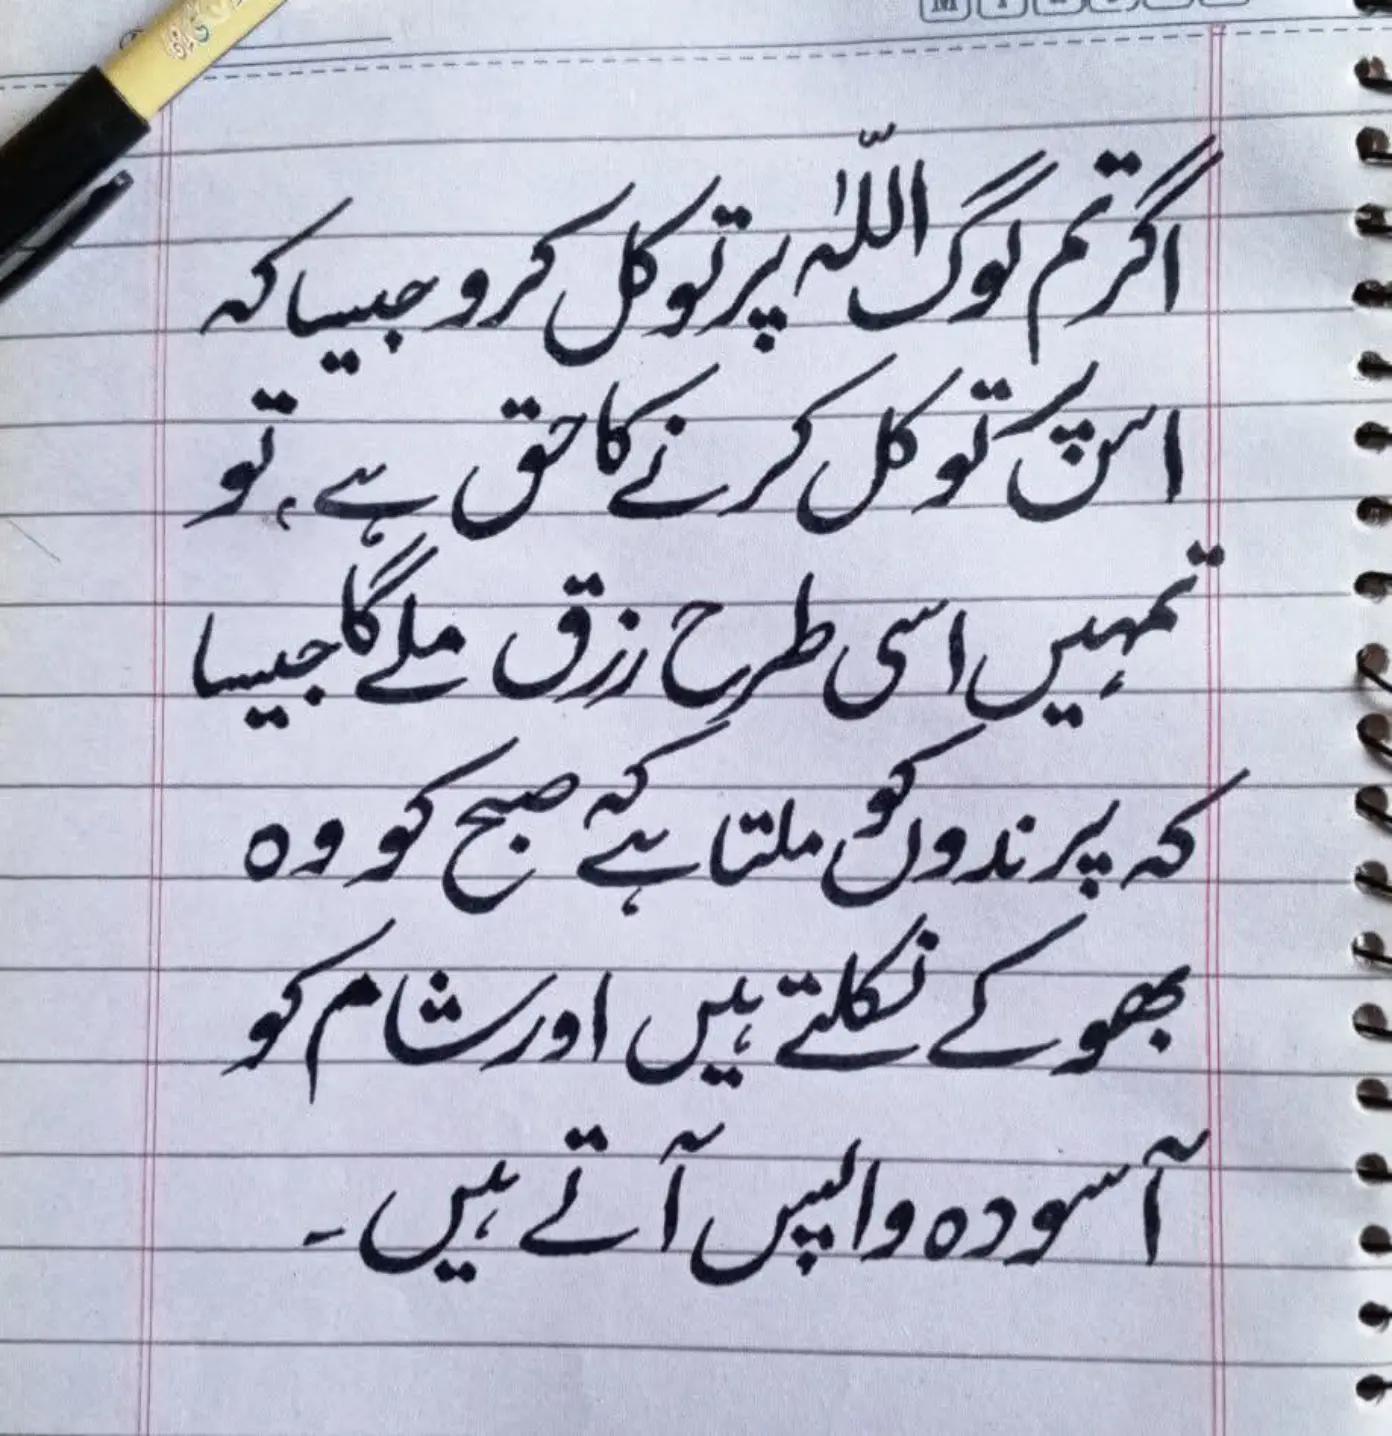 اگر تم لوگ اللّٰہ پر توکل کرو جیسا کہ
اس پر توکل کرنے کا حق ہے، تو
تمہیں اسی طرح رزق ملے گا جیسا
کہ پرندوں کو ملتا ہے کہ صبح کو وہ
بھوکے نکلتے ہیں اور شام کو
آسودہ واپس آتے ہیں۔